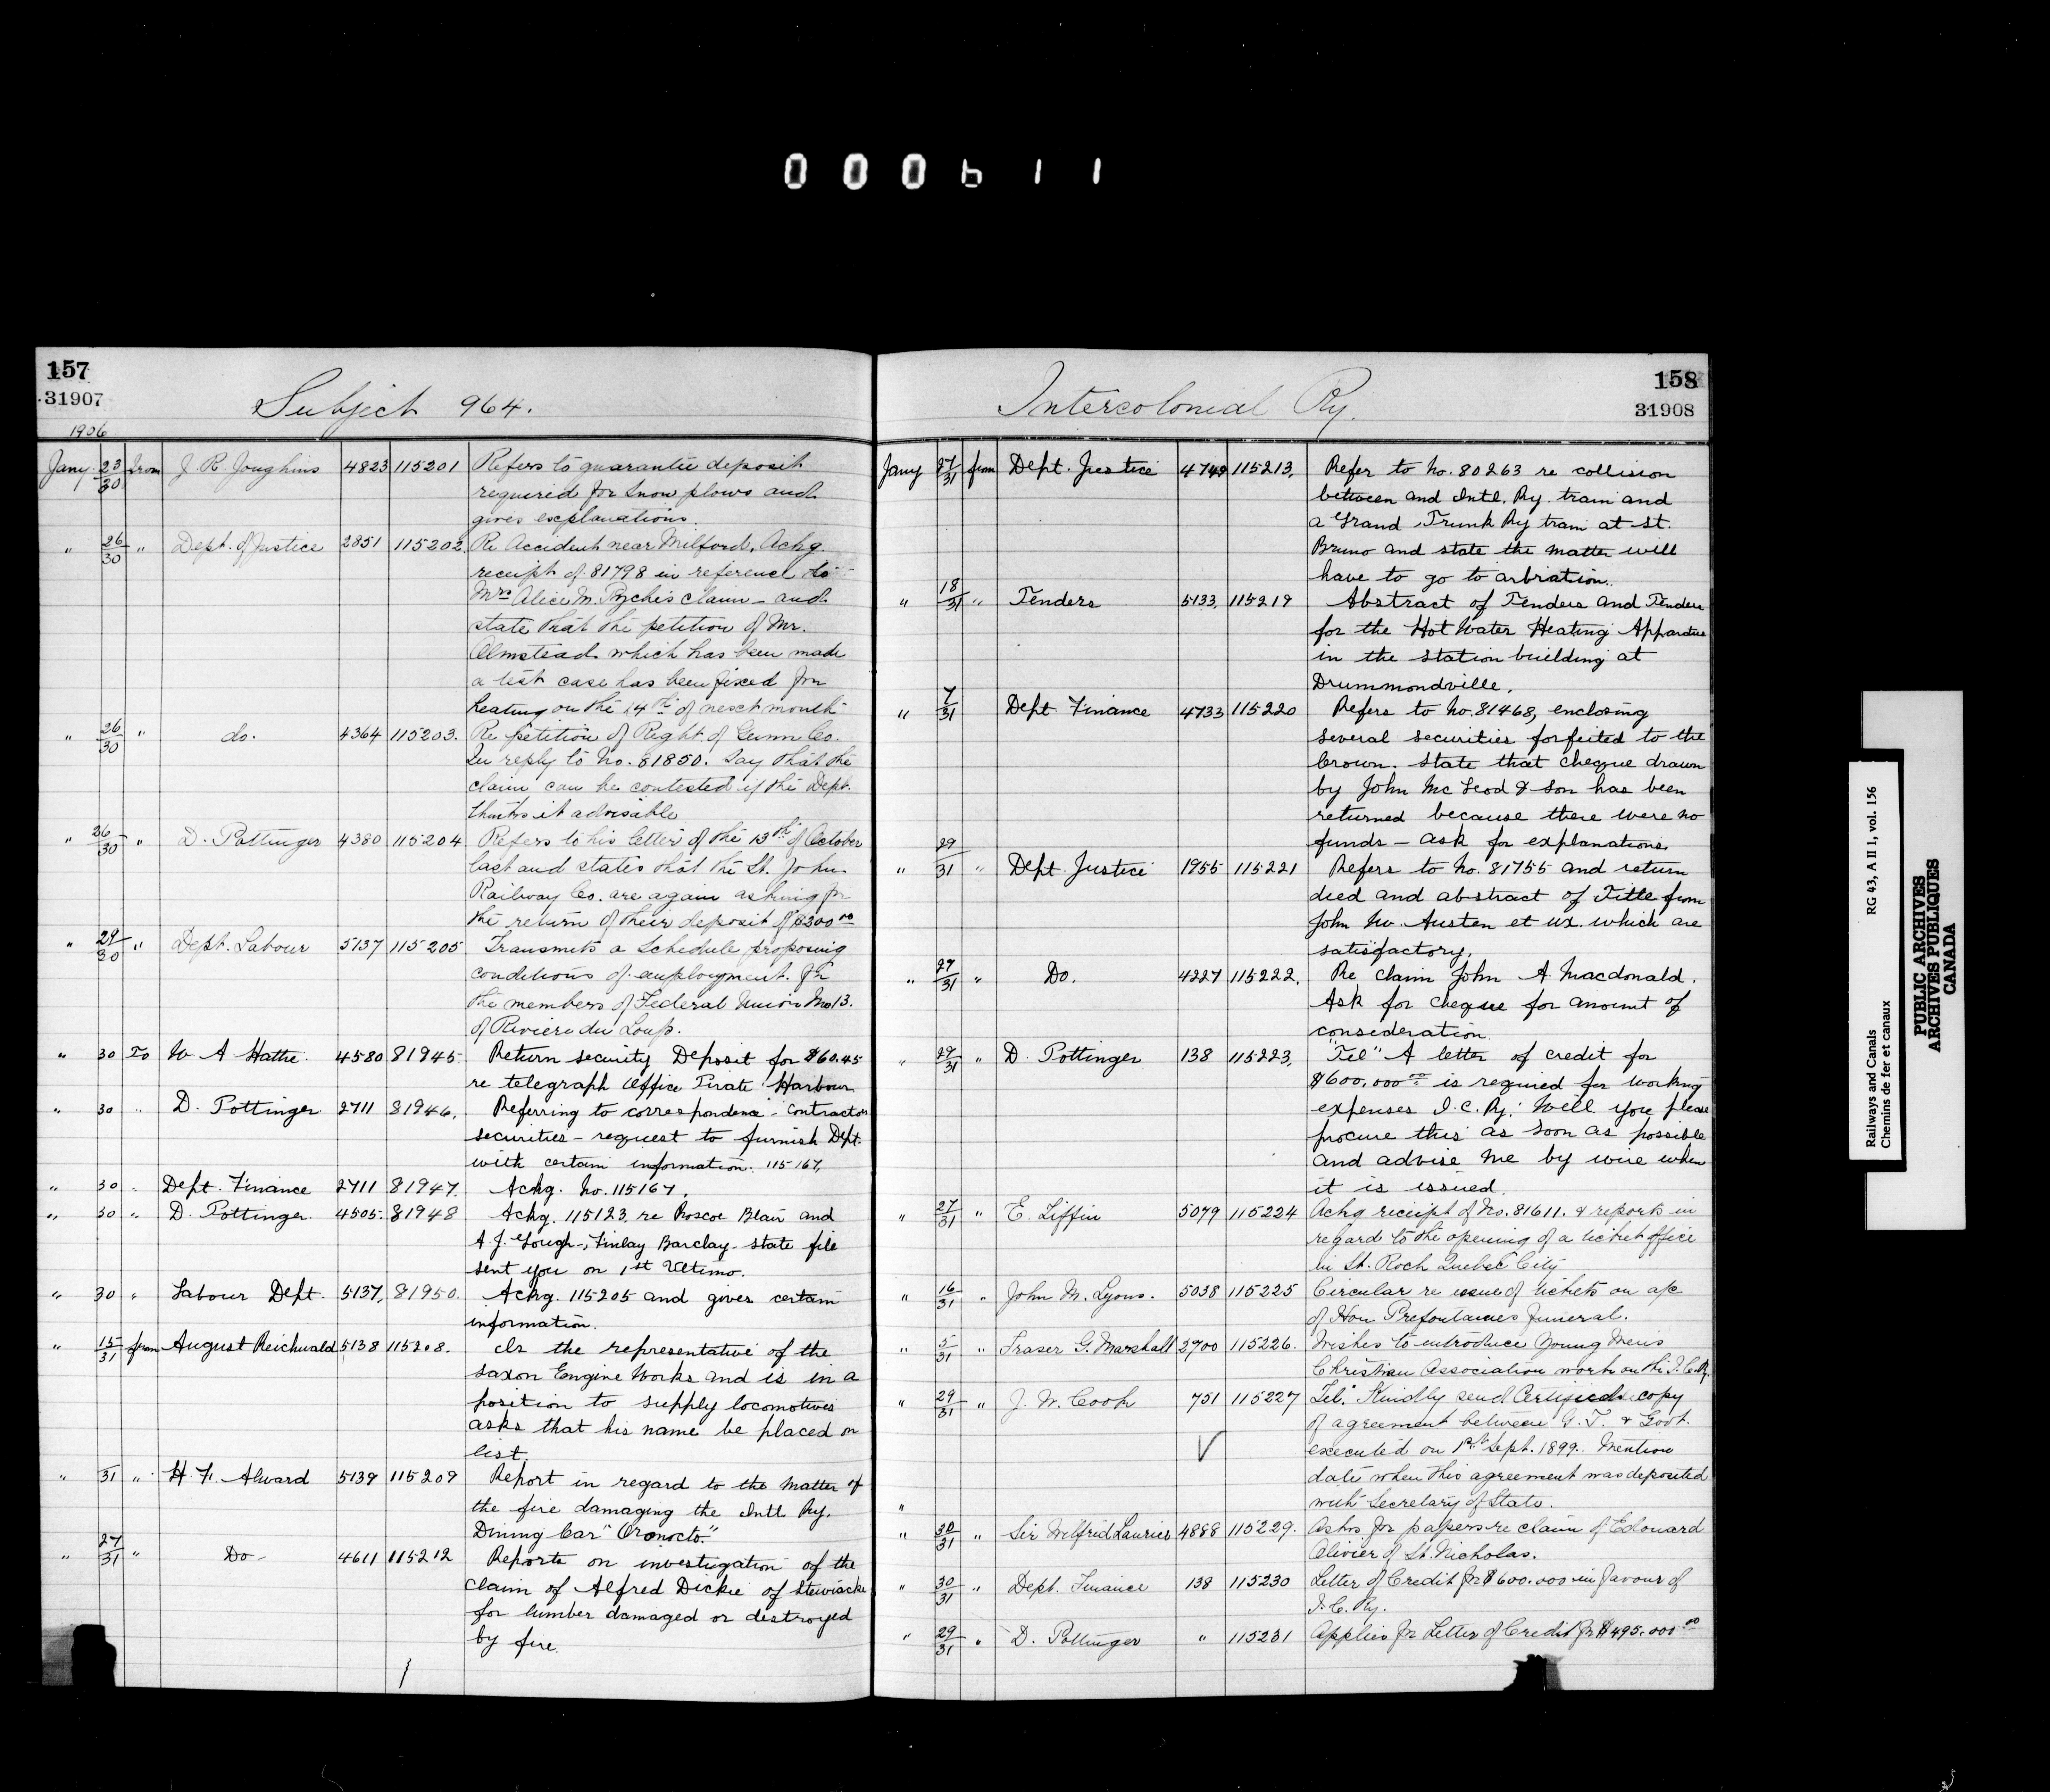 000611
157
31907
Subject 964.
1906
Jany. 23/30 From J. R. Joughins 4823 115201 Refers to guarantee deposit
required for snow plows and
gives explanations.
" 26/30 " Dept. of Justice 2851 115202. Re Accident near Milford. Ackg.
receipt of 81798 in reference to
Mrs Alice M. claim - and
state that the petition of Mr.
Olmstead which has been made
a test case has been fixed for
heating on the 14th of next month
" 26/30 " do. 4364 115203. Re petition of Right of Gunn Co.
In reply to No. 81850. Say that the
claim can be contested if the Dept.
thinks it advisable
" 26/30 " D. Pottinger 4380 115204 Refers to his letter of the 13th of October
last and states that the St. John
Railway Co. are again asking for
the return of their deposit of $200 00
" 29/30 " Dept. Labour 5137 115205 Transmits a Schedule proposing
conditions of employment for
the members of Federal Union No 13.
of Riviere du Loup.
" 30 To W A Hattie. 4580 81945. Return security Deposit for $60.45
re telegraph Office Pirate Harbour
" 30 " D. Pottinger. 2711 81946. Referring to correspondence - Contractors
securities - request to furnish Dept.
with certain information. 115167.
" 30 " Dept. Finance 2711 81947. Ackg. No. 115167.
" 30 " D. Pottinger. 4505. 81948 Ackg. 115123. re Roscoe Blair and
A. J. Gough -, Finlay Barclay - state file
sent you on 1st Ultimo.
" 30 " Labour Dept. 5137. 81950. Ackg. 115205 and gives certain
information.
" 15/31 from August Reichwald 5138 115208. Is the representative of the
Saxon Engine Works and is in a
position to supply locomotives
asks that his name be placed on
list.
" 31 " H. F. Alward 5139 115209 Report in regard to the matter of
the fire damaging the Intl. Ry.
Dining Car "Oronocto."
" 27/31 " Do - 4611 115212 Reports on investigation of the
claim of Alfred Dickie of Stewiacke
for lumber damaged or destroyed
by fire.
158
31908
Intercolonial Ry.
Jany 27/31 from Dept. Justice 4749 115213. Refer to No. 80263 re collision
between and Intl. Ry. train and
a Grand Trunk Ry train at St.
Bruno and state the matter will
have to go to arbration..
" 18/31 " Tenders 5133. 115219 Abstract of Tenders and Tenders
for the Hot Water Heating Apparatus
in the station building at
Drummondville.
" 7/31 Dept Finance 4733 115220 Refers to No. 81468, enclosing
several securities forfeited to the
Crown. State that cheque drawn
by John Mc Leod & Son has been
returned because there were no
funds - ask for explanations
" 29/31 " Dept. Justice 1955 115221 Refers to No. 81755 and return
deed and abstract of Title from
John W. Austen et ux. which are
satisfactory.
" 27/31 " Do. 4227 115222. Re claim John A. Macdonald.
Ask for cheque for amount of
consideration.
" 29/31 " D. Pottinger 138 115223. "Tel" A letter of credit for
$600.000 00 is required for working
expenses I. C. Ry. Will you please
procure this as soon as possible
and advise me by wire when
it is issued.
" 27/31 " E. Tiffin 5079 115224 Ackg receipt of No. 81611. & reports in
regard to the opening of a ticket office
in St. Roch Quebec City
" 16/31 " John M. Lyons. 5038 115225 Circular re issue of tickets on a/c
of Hon Prefontaines funeral.
" 5/31 " Fraser G. Marshall 2700 115226. Wishes to introduce Young Mens
Christian Association work on the I. C. Ry.
" 29/31 " J. W. Cook 751 115227 Tel. Kindly send Certified copy
of agreement between G. T. & Govt.
executed on 1st Sept. 1899. Mention
date when this agreement was deposited
with Secretary of State.
" 30/31 " Sir Wilfrid Laurier 4888 115229. Asks for papers re claim of Edouard
Olivier of St. Nicholas.
" 30/31 " Dept. Finance 138 115230 Letter of Credit for $600.000 in favour of
I. C. Ry.
" 29/31 " D. Pottinger " 115231 Applies for Letter of Credit for $495.000 00
Railways and Canals RG 43, A II 1, vol. 156
Chemins de fer et canaux
PUBLIC ARCHIVES
ARCHIVES PUBLIQUES
CANADA